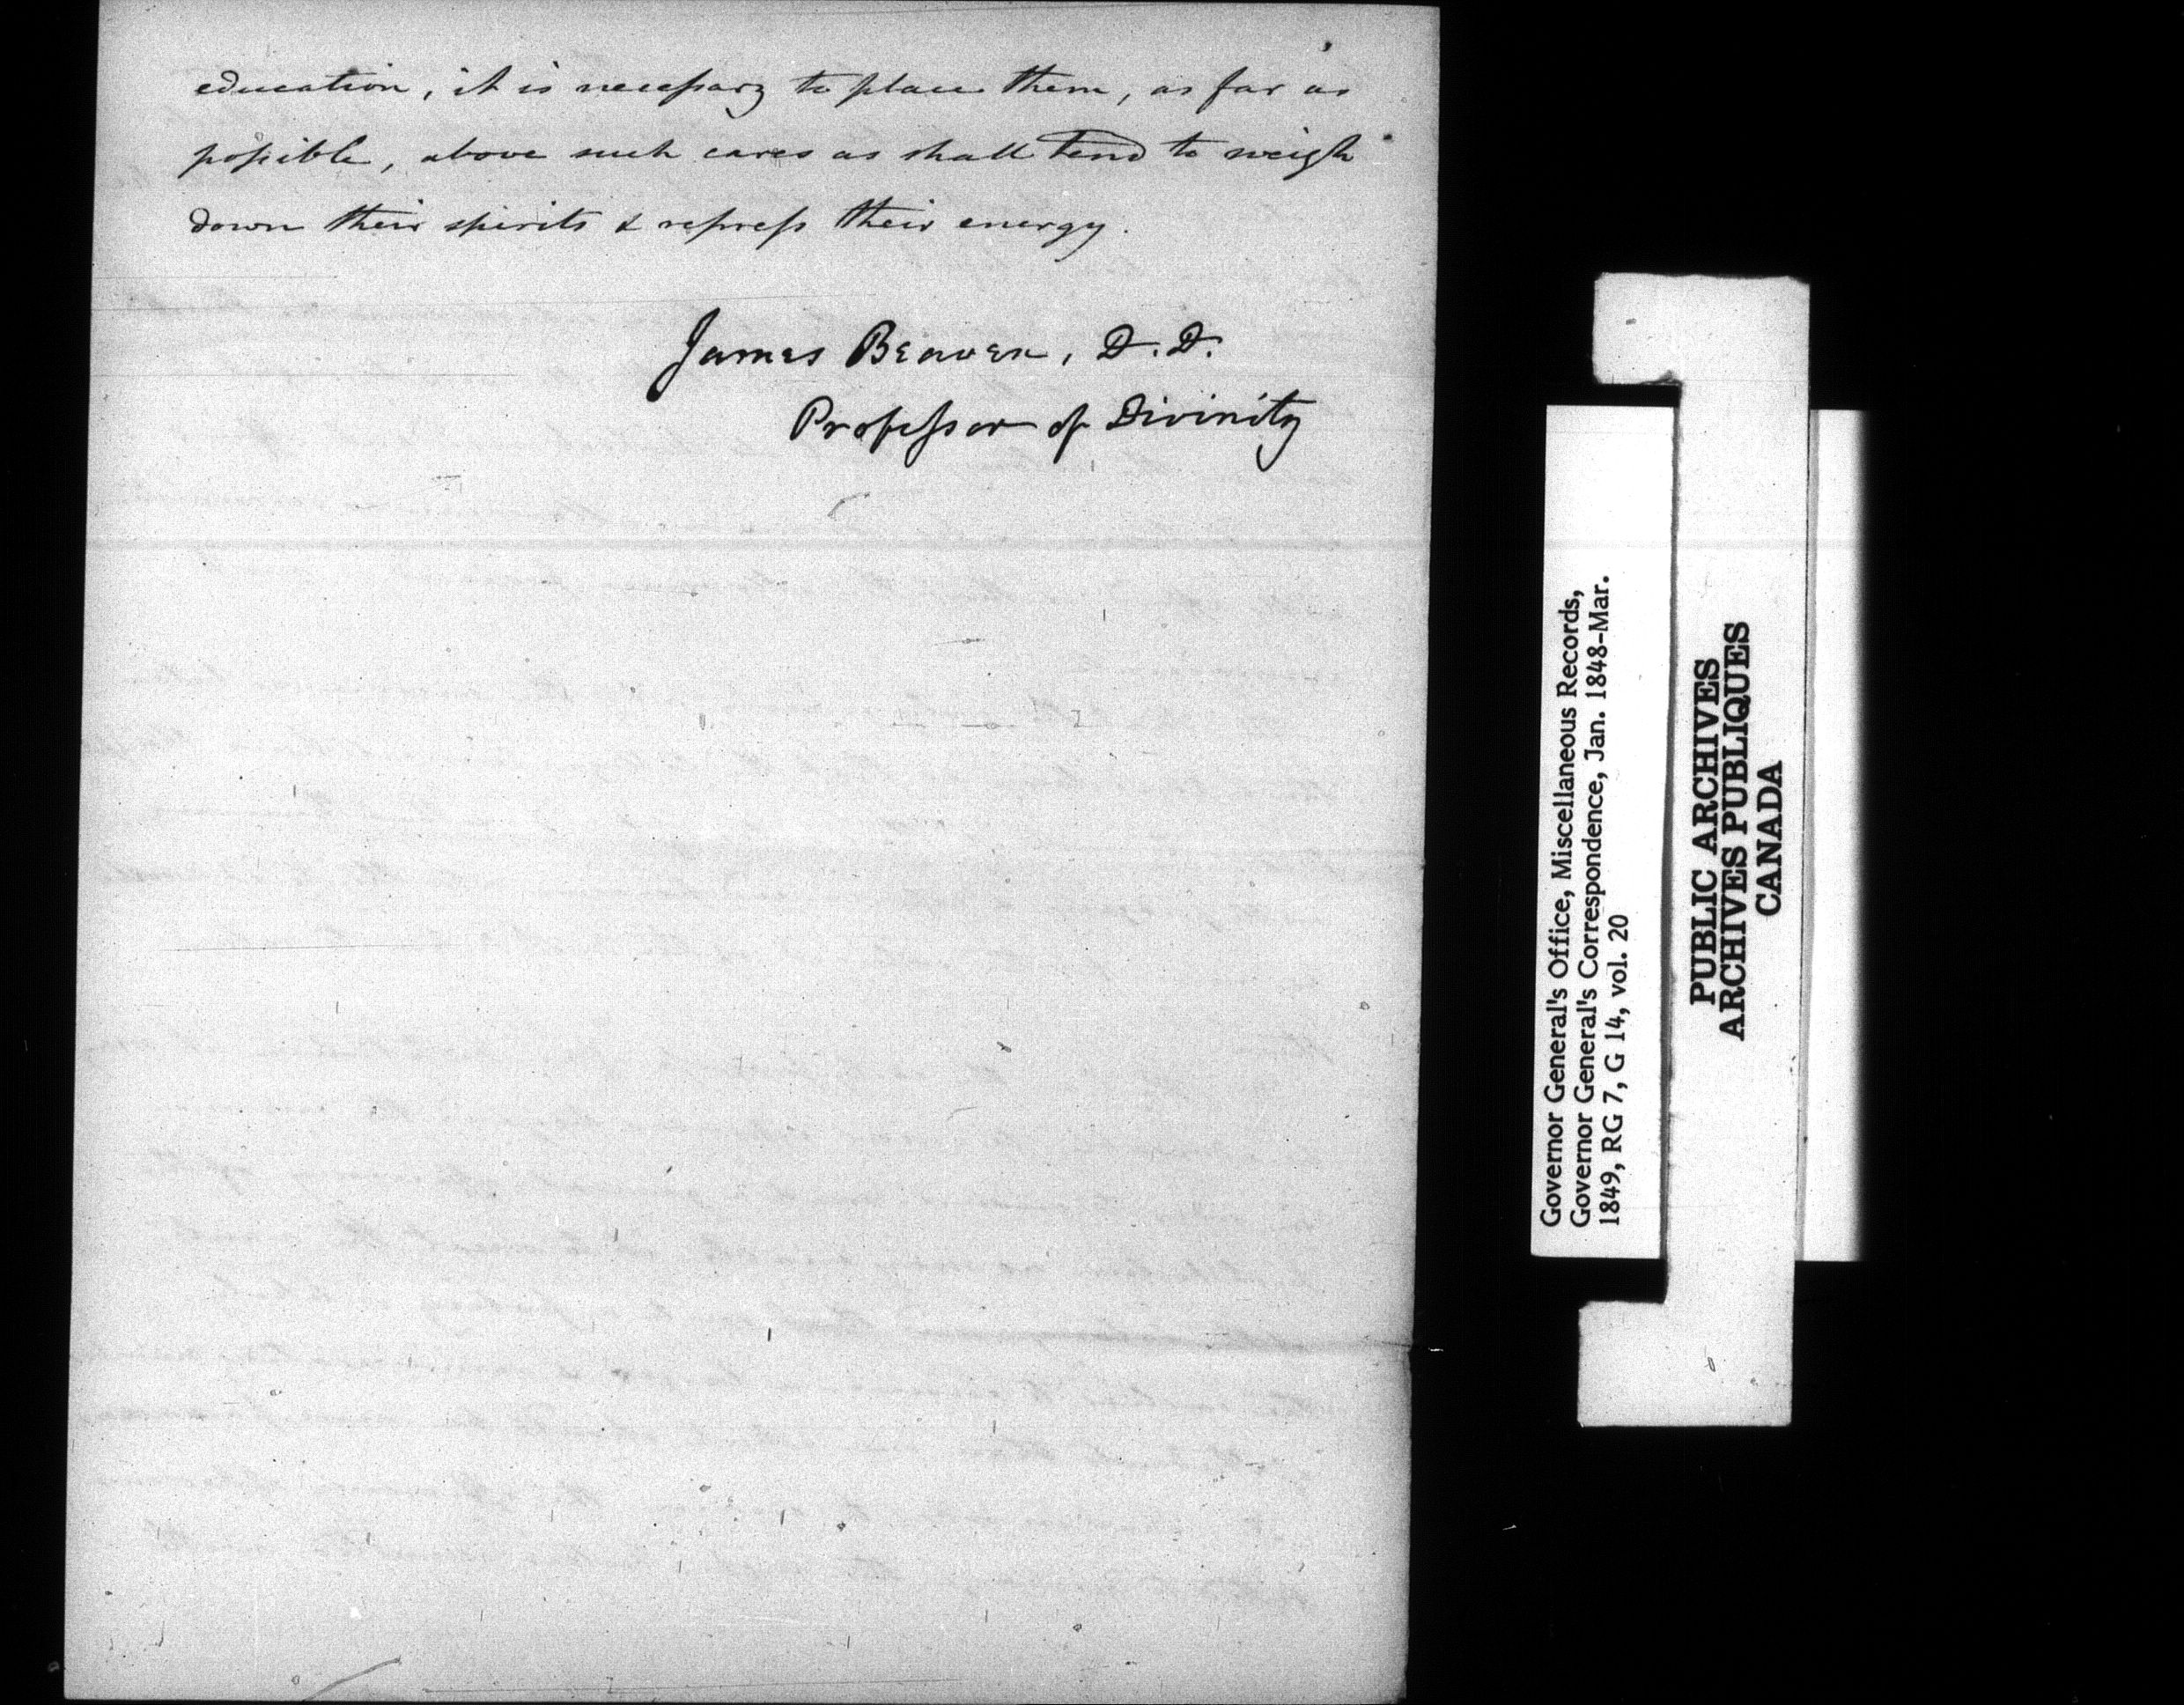 education, it is necessary to place them, as far as
possible, above such cares as shall tend to weigh
down their spirits & repress their energy.
James Beaven, D.D.
Professor of Divinity
Governor General's Office, Miscellaneous Records,
Governor General's Correspondence, Jan. 1848-Mar.
1849, RG 7, G 14, vol. 20
PUBLIC ARCHIVES
ARCHIVES PUBLIQUES
CANADA